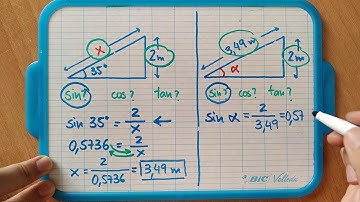 x
2m
35°
sin? cos? tan?
sin 35° = 2/x ←
0,5736 = 2/x
x = 2/0,5736 = 3,49 m
3,49 m
2m
α
sin? cos? tan?
sin α = 2/3,49 = 0,57
BIC Velleda